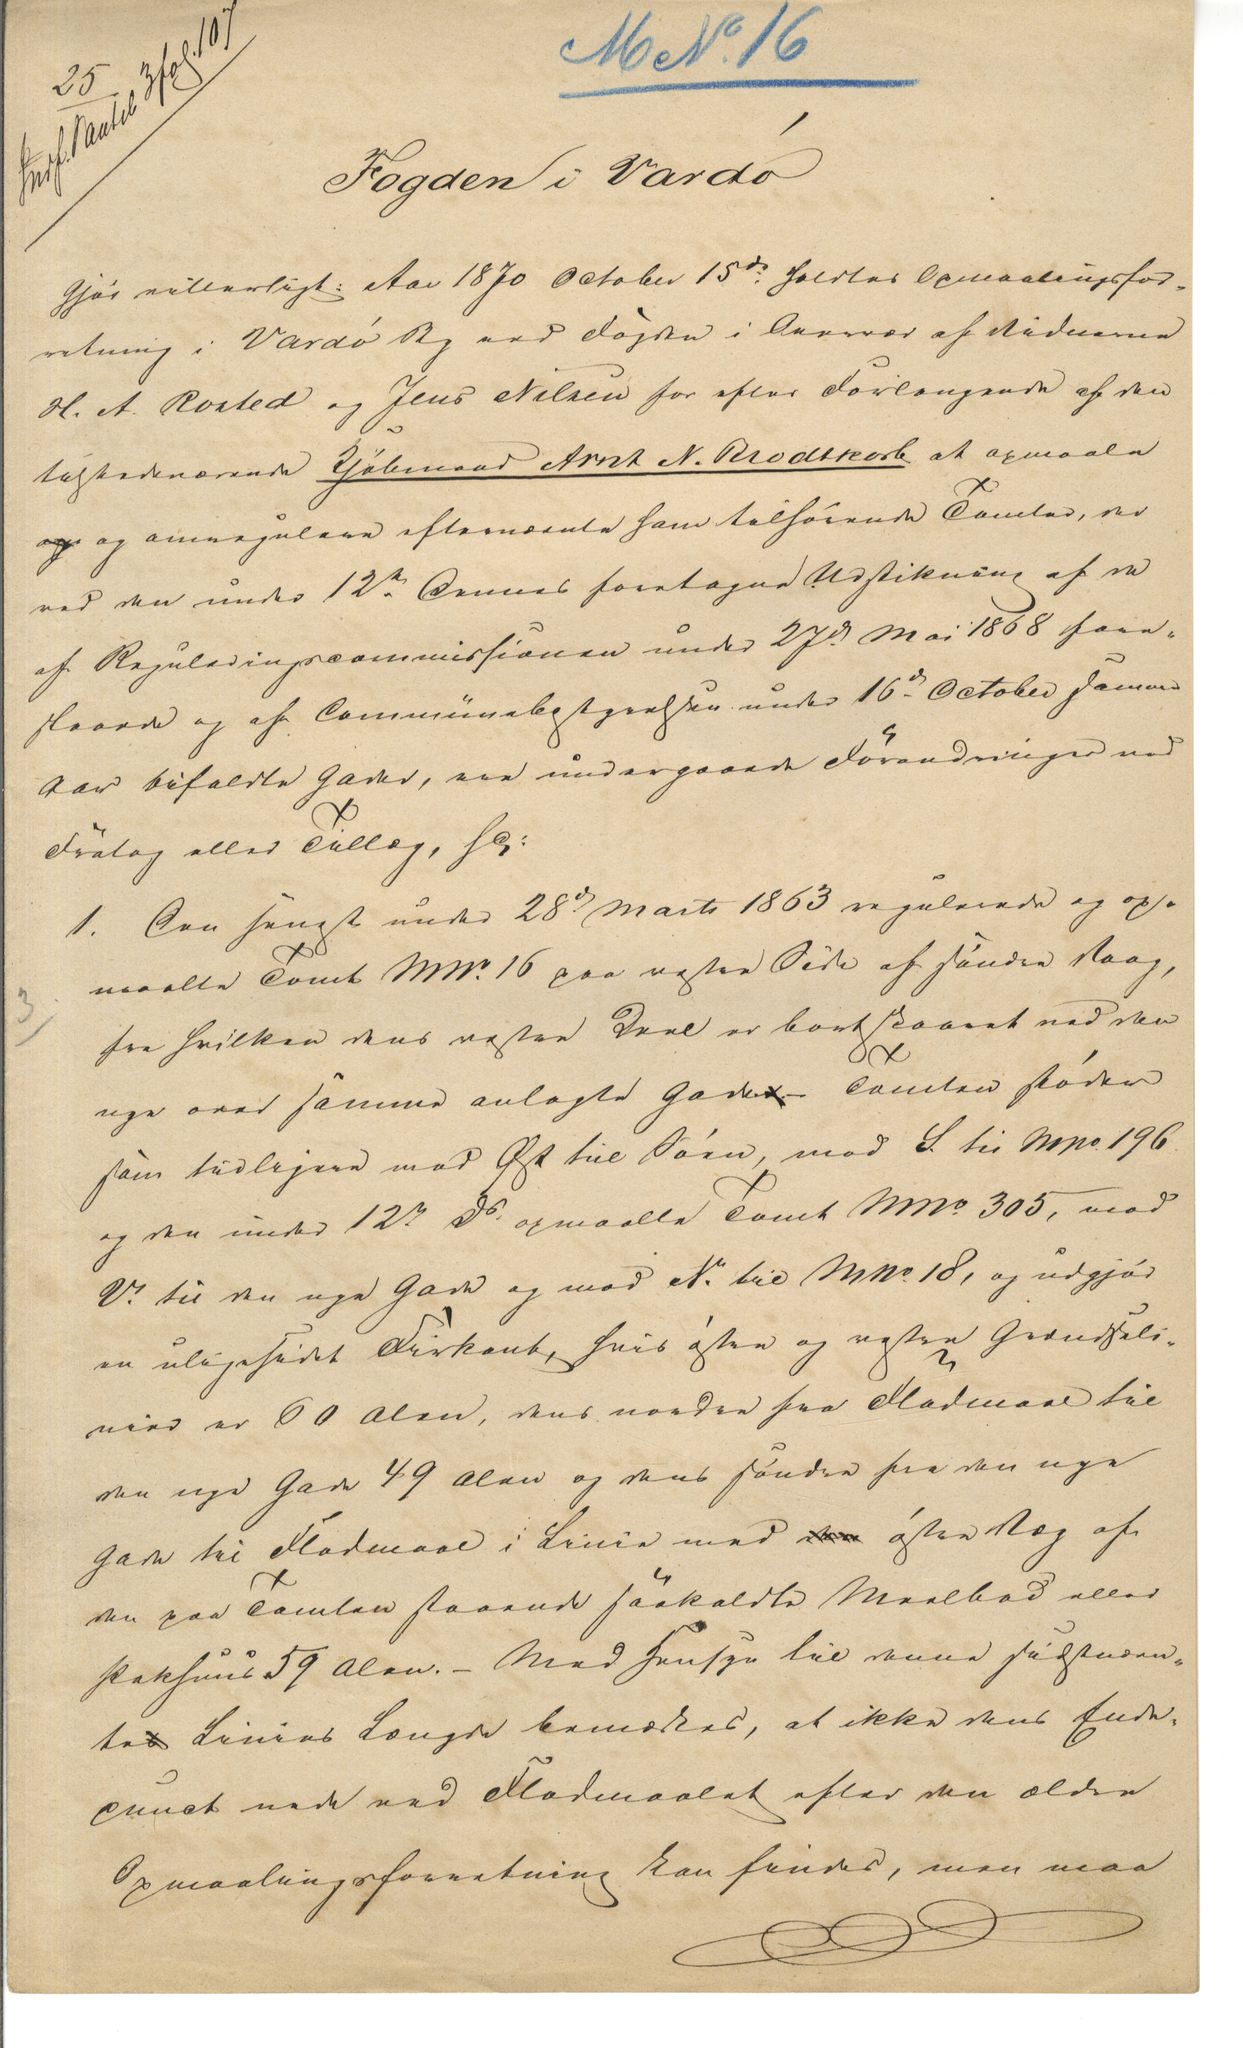 M No. 16
25
Indf. Panteb 3 fol. 107
Fogden i Vardö
Gjör vitterligt: Aar 1870 October 15de holdtes Opmaalingsfor-
retning i Vardö By ved Fogden i Overvær af Vidnerne
H. A. Rosted og Jens Nilsen for efter Forlangende af den
tilstedeværende Kjöbmand Arnt N. Brodtkorb at opmaale
og omregulere efternævnte ham tilhörende Tomter, der
ved den under 12te Dennes foretagne Udstikning af de
af Reguleringscommissionen under 27de Mai 1868 fore-
slaaede og af Communebestyrelsen under 16de October samme
Aar bifaldte Gader, ere undergaaede Forandringer ved
Fratag eller Tillæg, sc:
1. Den henst under 28de Marts 1863 regulerede og op-
maalte Tomt MNo. 16 paa vestre Side af söndre Vaag,
3
fra hvilken dens vestre Deel er bortskaaret ved den
nye over samme anlagte Gade. Tomten stöder
som tidligere mod Øst til Söen, mod S. til MNo 196
og den under 12te ds. opmaalte Tomt MNo 305, mod
V. til den nye Gade og mod N. til MNo 18, og udgjör
en uligesidet Firkant, hvis östre og vestre Grændseli-
nier er 60 Alen, dens nordre fra Flodmaal til
den nye Gade 49 Alen og dens söndre fra den nye
Gade til Flodmaal i Linie med östre Væg af
den paa Tomten staaende saakaldte Meelbod eller
Pakhuus 59 Alen. - Med Hensyn til denne sidstnævn-
te Linies Længde bemærkes, at ikke dens Ende-
punct nede ved Flodmaalet efter den ældre
Opmaalingsforretning kan findes, men maa